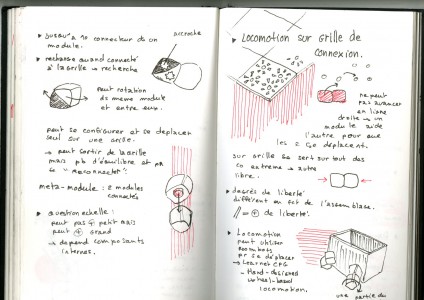 jusqu'à 10 connecteur de un
module.
accroche
recharge quand connecté
à la grille → recherche
peut rotation
de même module
et entre eux.
peut se configurer et se déplacer
seul sur une grille.
→ peut sortir de la grille
mais pb d'équilibre et pr
se "reconnecter".
meta-module : 2 modules
connectés
question échelle :
peut pas + petit mais
peut + grand
→ dépend composants
internes.
Locomotion sur grille de
connexion.
ne peut
pas avancer
en ligne
droite → un
module aide
l'autre pour que
les 2 se déplacent.
sur grille se sert surtout des
co extreme → autre
libre.
degrés de liberté
différent en fct de l'assemblage.
= + de liberté.
Locomotion
peut utiliser
roombots
pr se déplacer
→ Learnet CPG
- Hand-designed
wheel-based
locomotion.
une partie du